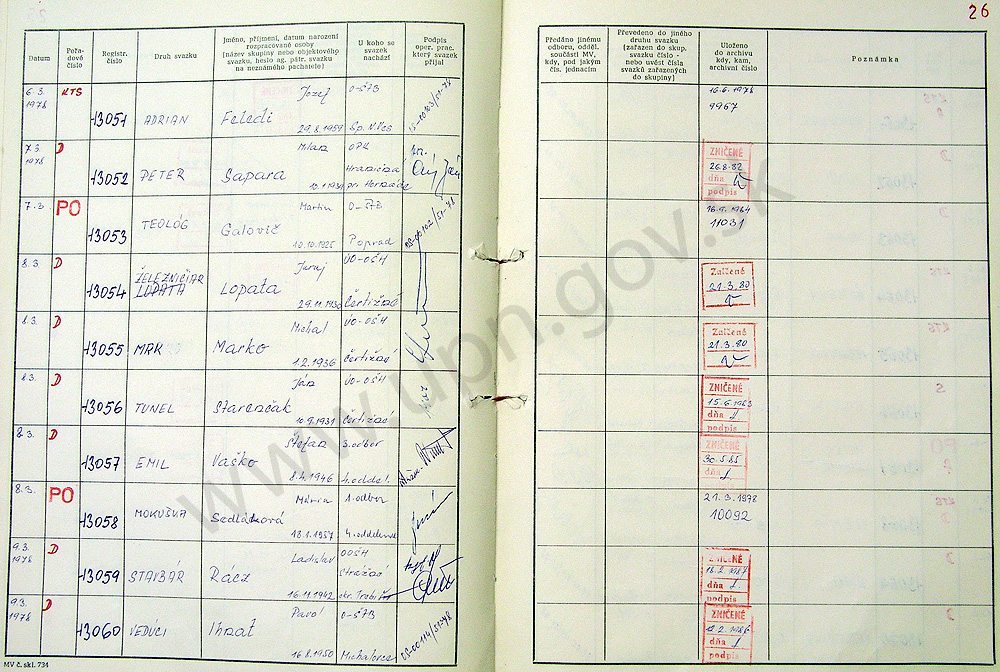 26
Datum
Pořadové číslo
Registr. číslo
Druh svazku
Jméno, příjmení, datum narození rozpracované osoby (název skupiny nebo objektového svazku, heslo ag. pátr. svazku na neznámého pachatele)
U koho se svazek nachází
Podpis oper. prac. který svazek přijal
Předáno jinému odboru, odděl. součásti MV, kdy, pod jakým čís. jednacím
Převedeno do jiného druhu svazku (zařazen do skup. svazku číslo - nebo uvést čísla svazků zařazených do skupiny)
Uloženo do archivu kdy, kam, archivní číslo
Poznámka
6.3. 1978 KTS 13051 ADRIAN Jozef Feledi 29.8.1959 O-ŠTB Sp. N. Ves
16.6.1978
9967
7.3. 1978 D 13052 PETER Milan Sapara OPK
ZNIČENÉ
26.8.82
dňa
podpis
7.3 PO 13053 TEOLÓG Martin Galovič 10.10.1925 O-ŠTB Poprad
16.9.1984
11031
8.3. D 13054 ŽELEZNIČIAR LOPATA Juraj Lopata ÚO-OŠH Čertižné
Zničené
21.3.80
8.3. D 13055 MRK Michal Marko 1.2.1936 ÚO-OŠH Čertižné
Zničené
21.3.80
8.3. D 13056 TUNEL Ján Starenčák 10.9.1931 ÚO-OŠH Čertižné
ZNIČENÉ
15.6.1983
dňa
podpis
8.3. D 13057 EMIL Štefan Vaško 8.4.1946 3.odbor 4.oddel.
ZNIČENÉ
30.5.85
dňa
8.3. PO 13058 MOKUŠKA Mária Sedláková 18.1.1957 1.odbor 4.oddelenie
21.3.1978
10092
9.3. 1978 D 13059 STAVBÁR Ladislav Rácz 16.11.1942 OOŠH Stražné okr. Trebišov
ZNIČENÉ
dňa
podpis
9.3. 1978 D 13060 VEDÚCI Pavol Ihnat 16.8.1950 O-ŠTB Michalovce
ZNIČENÉ
dňa
podpis
MV č. skl. 734
www.upn.gov.sk